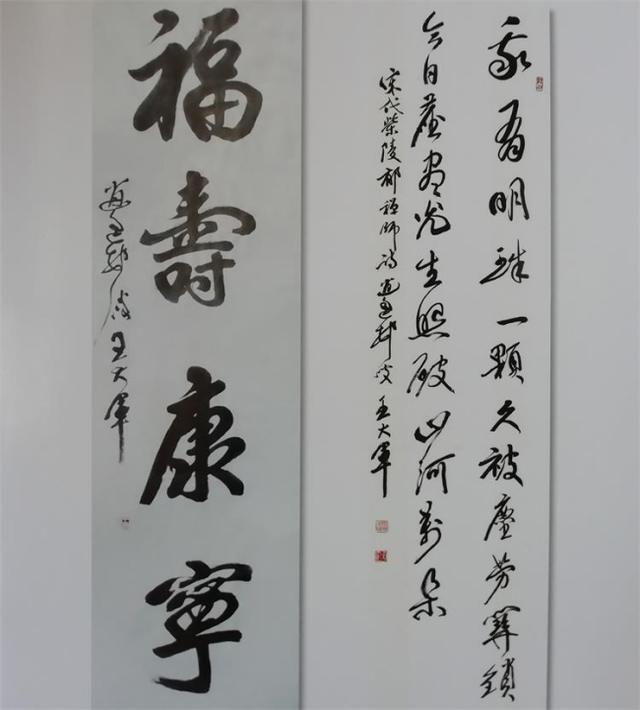 我有明珠一顆久被塵劳関鎖
今日塵盡光生照破山河萬朵
宋代柴陵郁禪師诗 王大軍
福壽康寧
王大軍